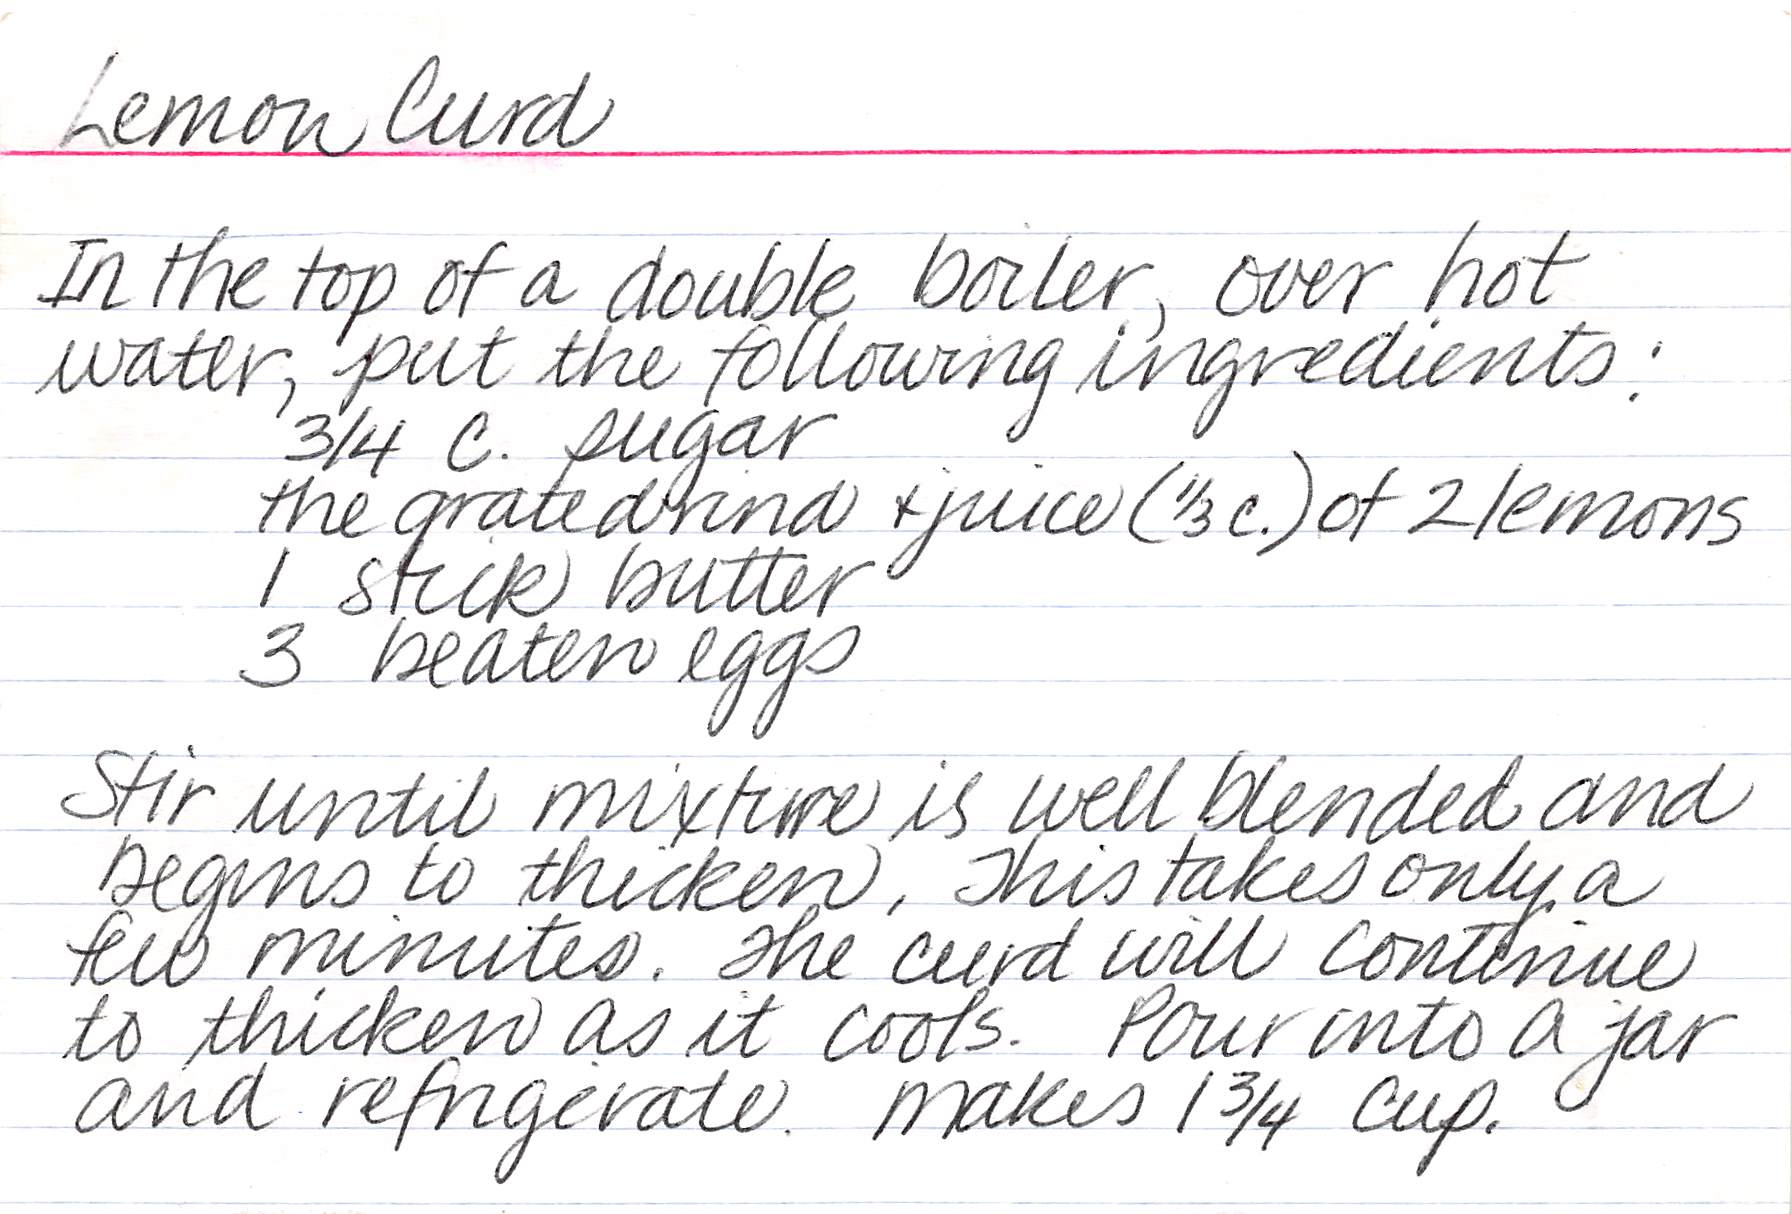 Lemon Curd
In the top of a double boiler, over hot
water, put the following ingredients:
3/4 c. sugar
the grated rind + juice (1/3 c.) of 2 lemons
1 stick butter
3 beaten eggs
Stir until mixture is well blended and
begins to thicken. This takes only a
few minutes. The curd will continue
to thicken as it cools. Pour into a jar
and refrigerate. Makes 1 3/4 cup.